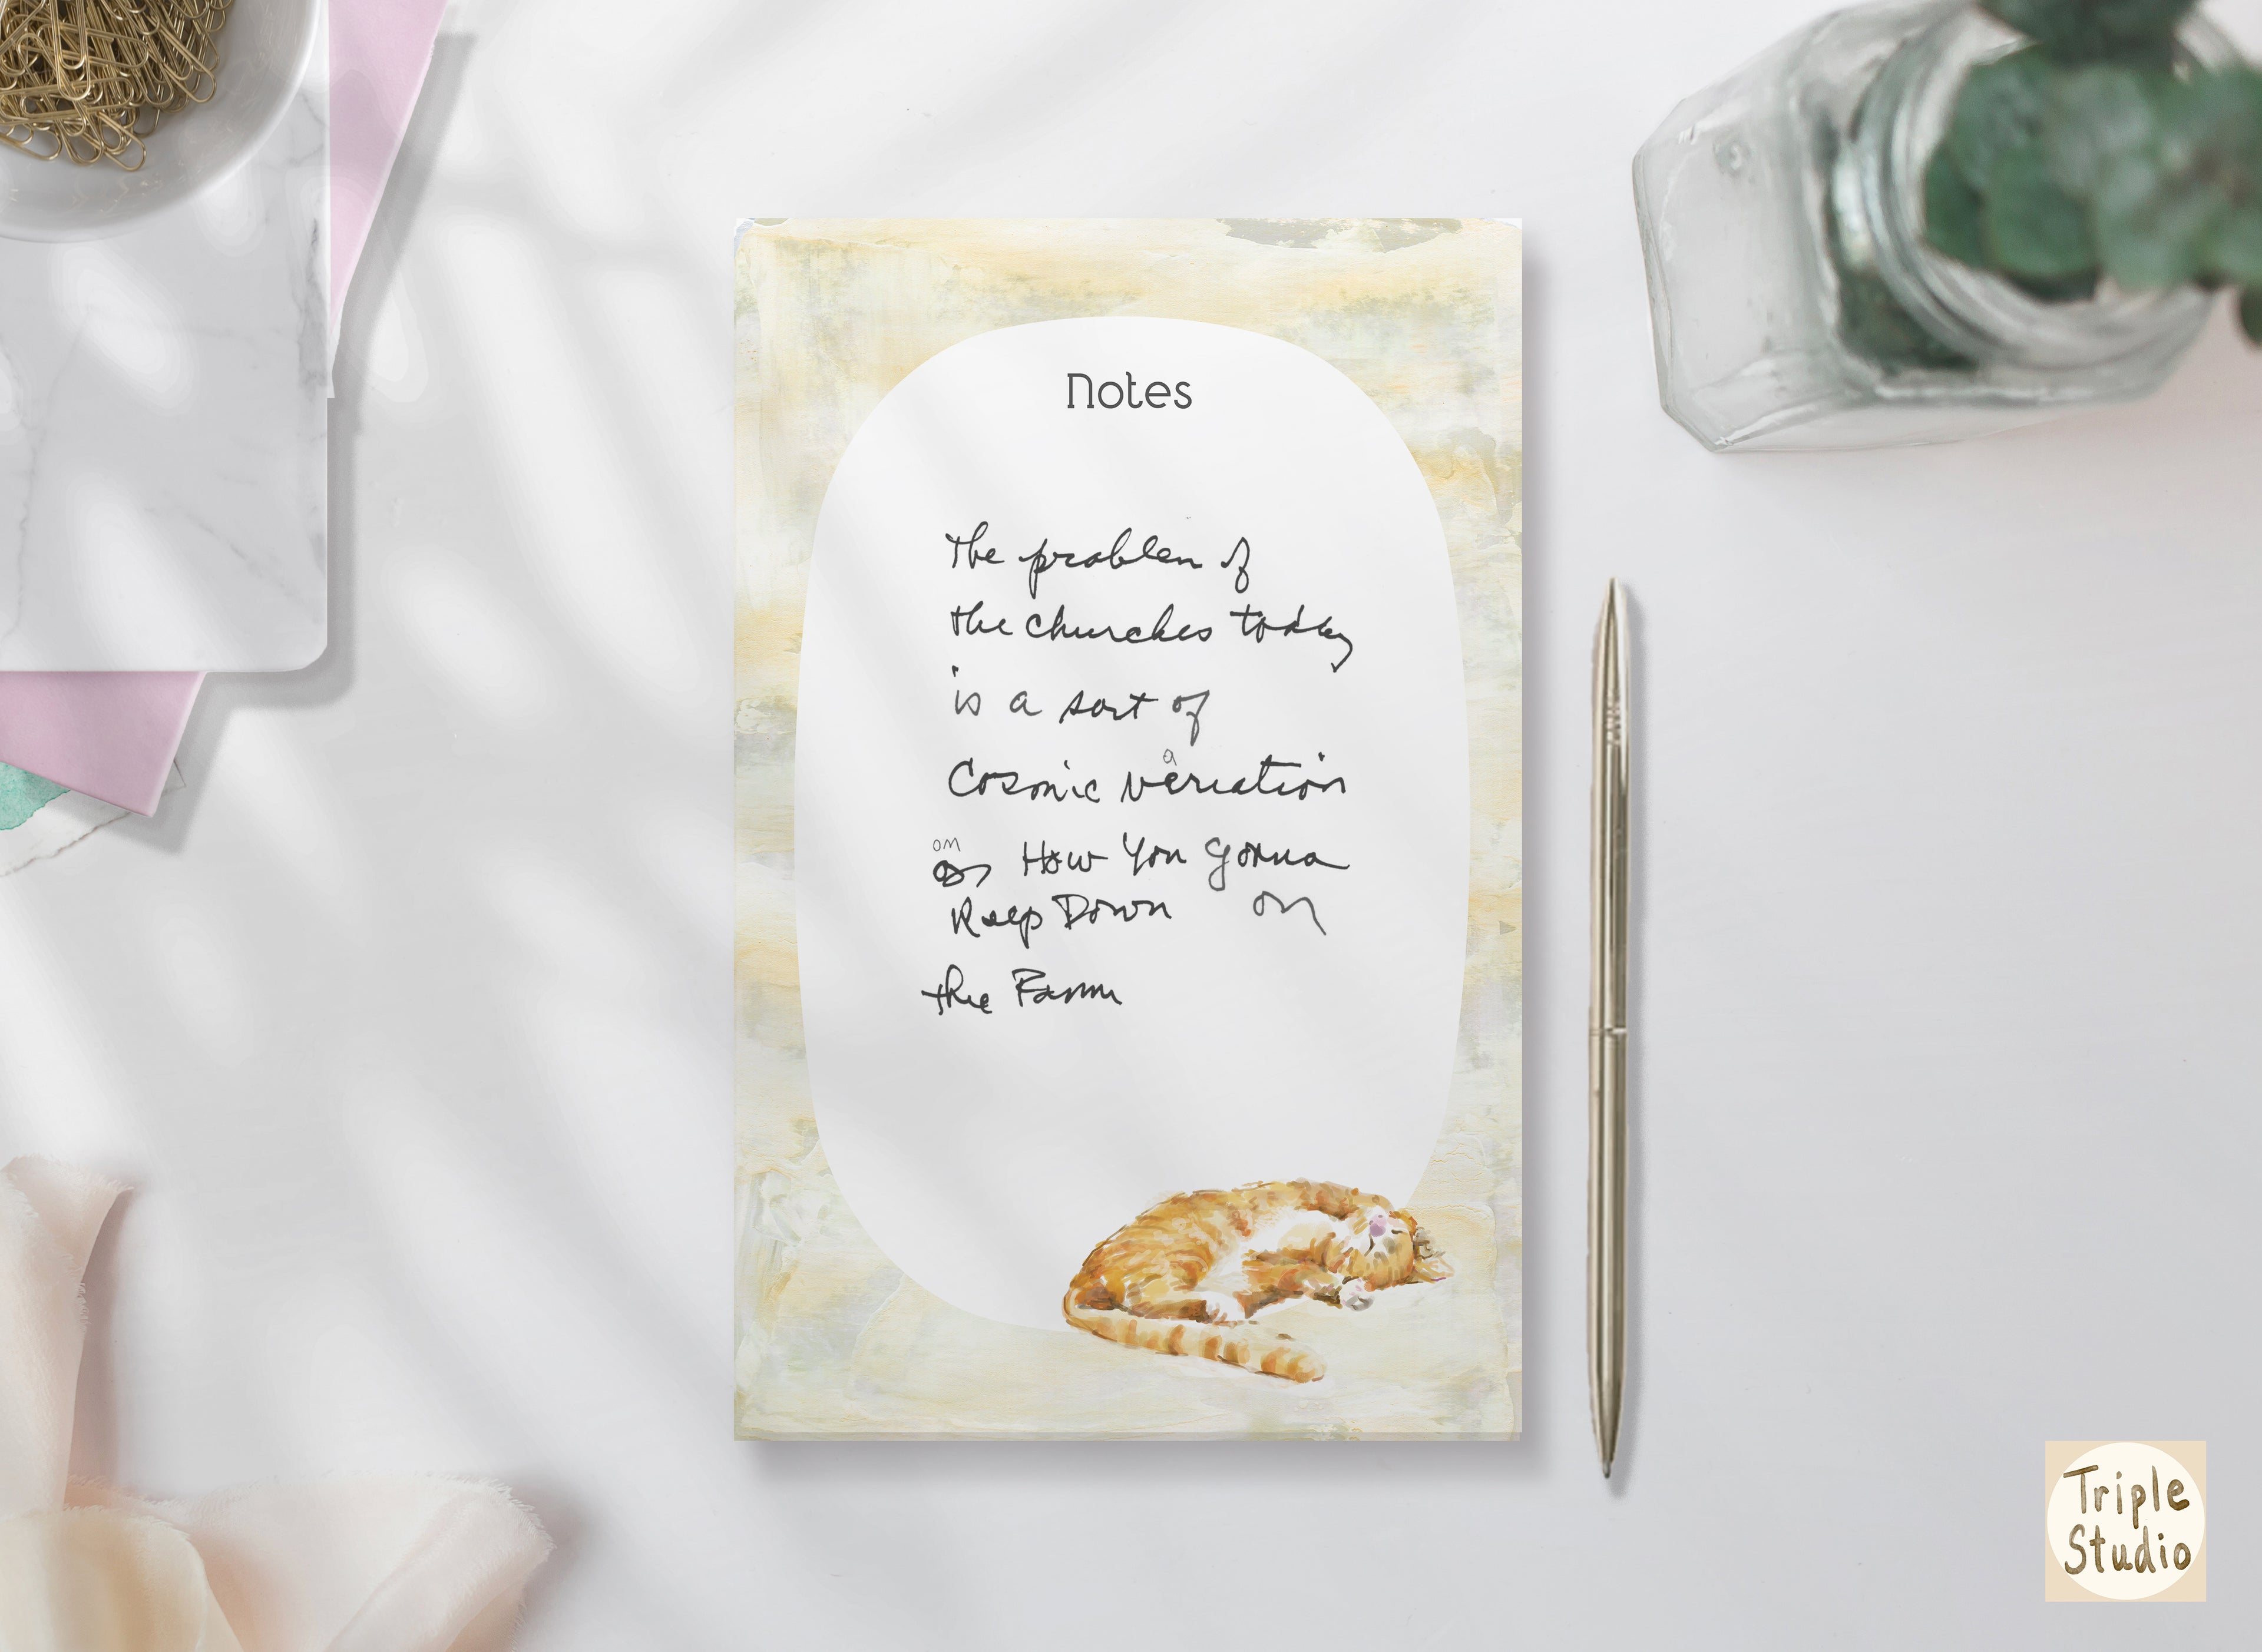 Notes
The problem of
the churches today
is a sort of
a
Cosmic veriation
on
on How You Gonna
Keep Down on
the Farm
Triple
Studio